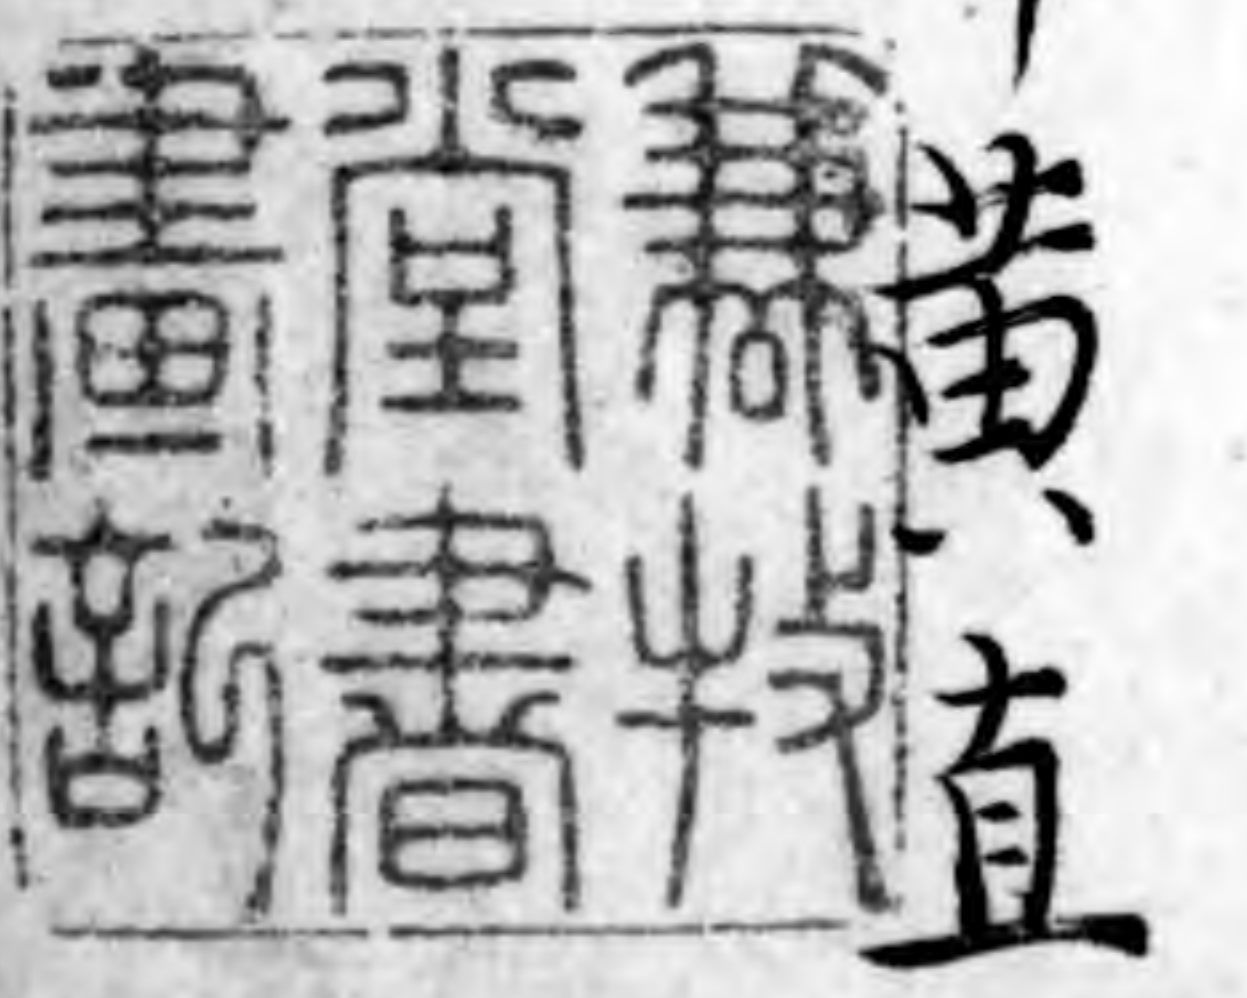 黄直
兼牧
堂書
畫記